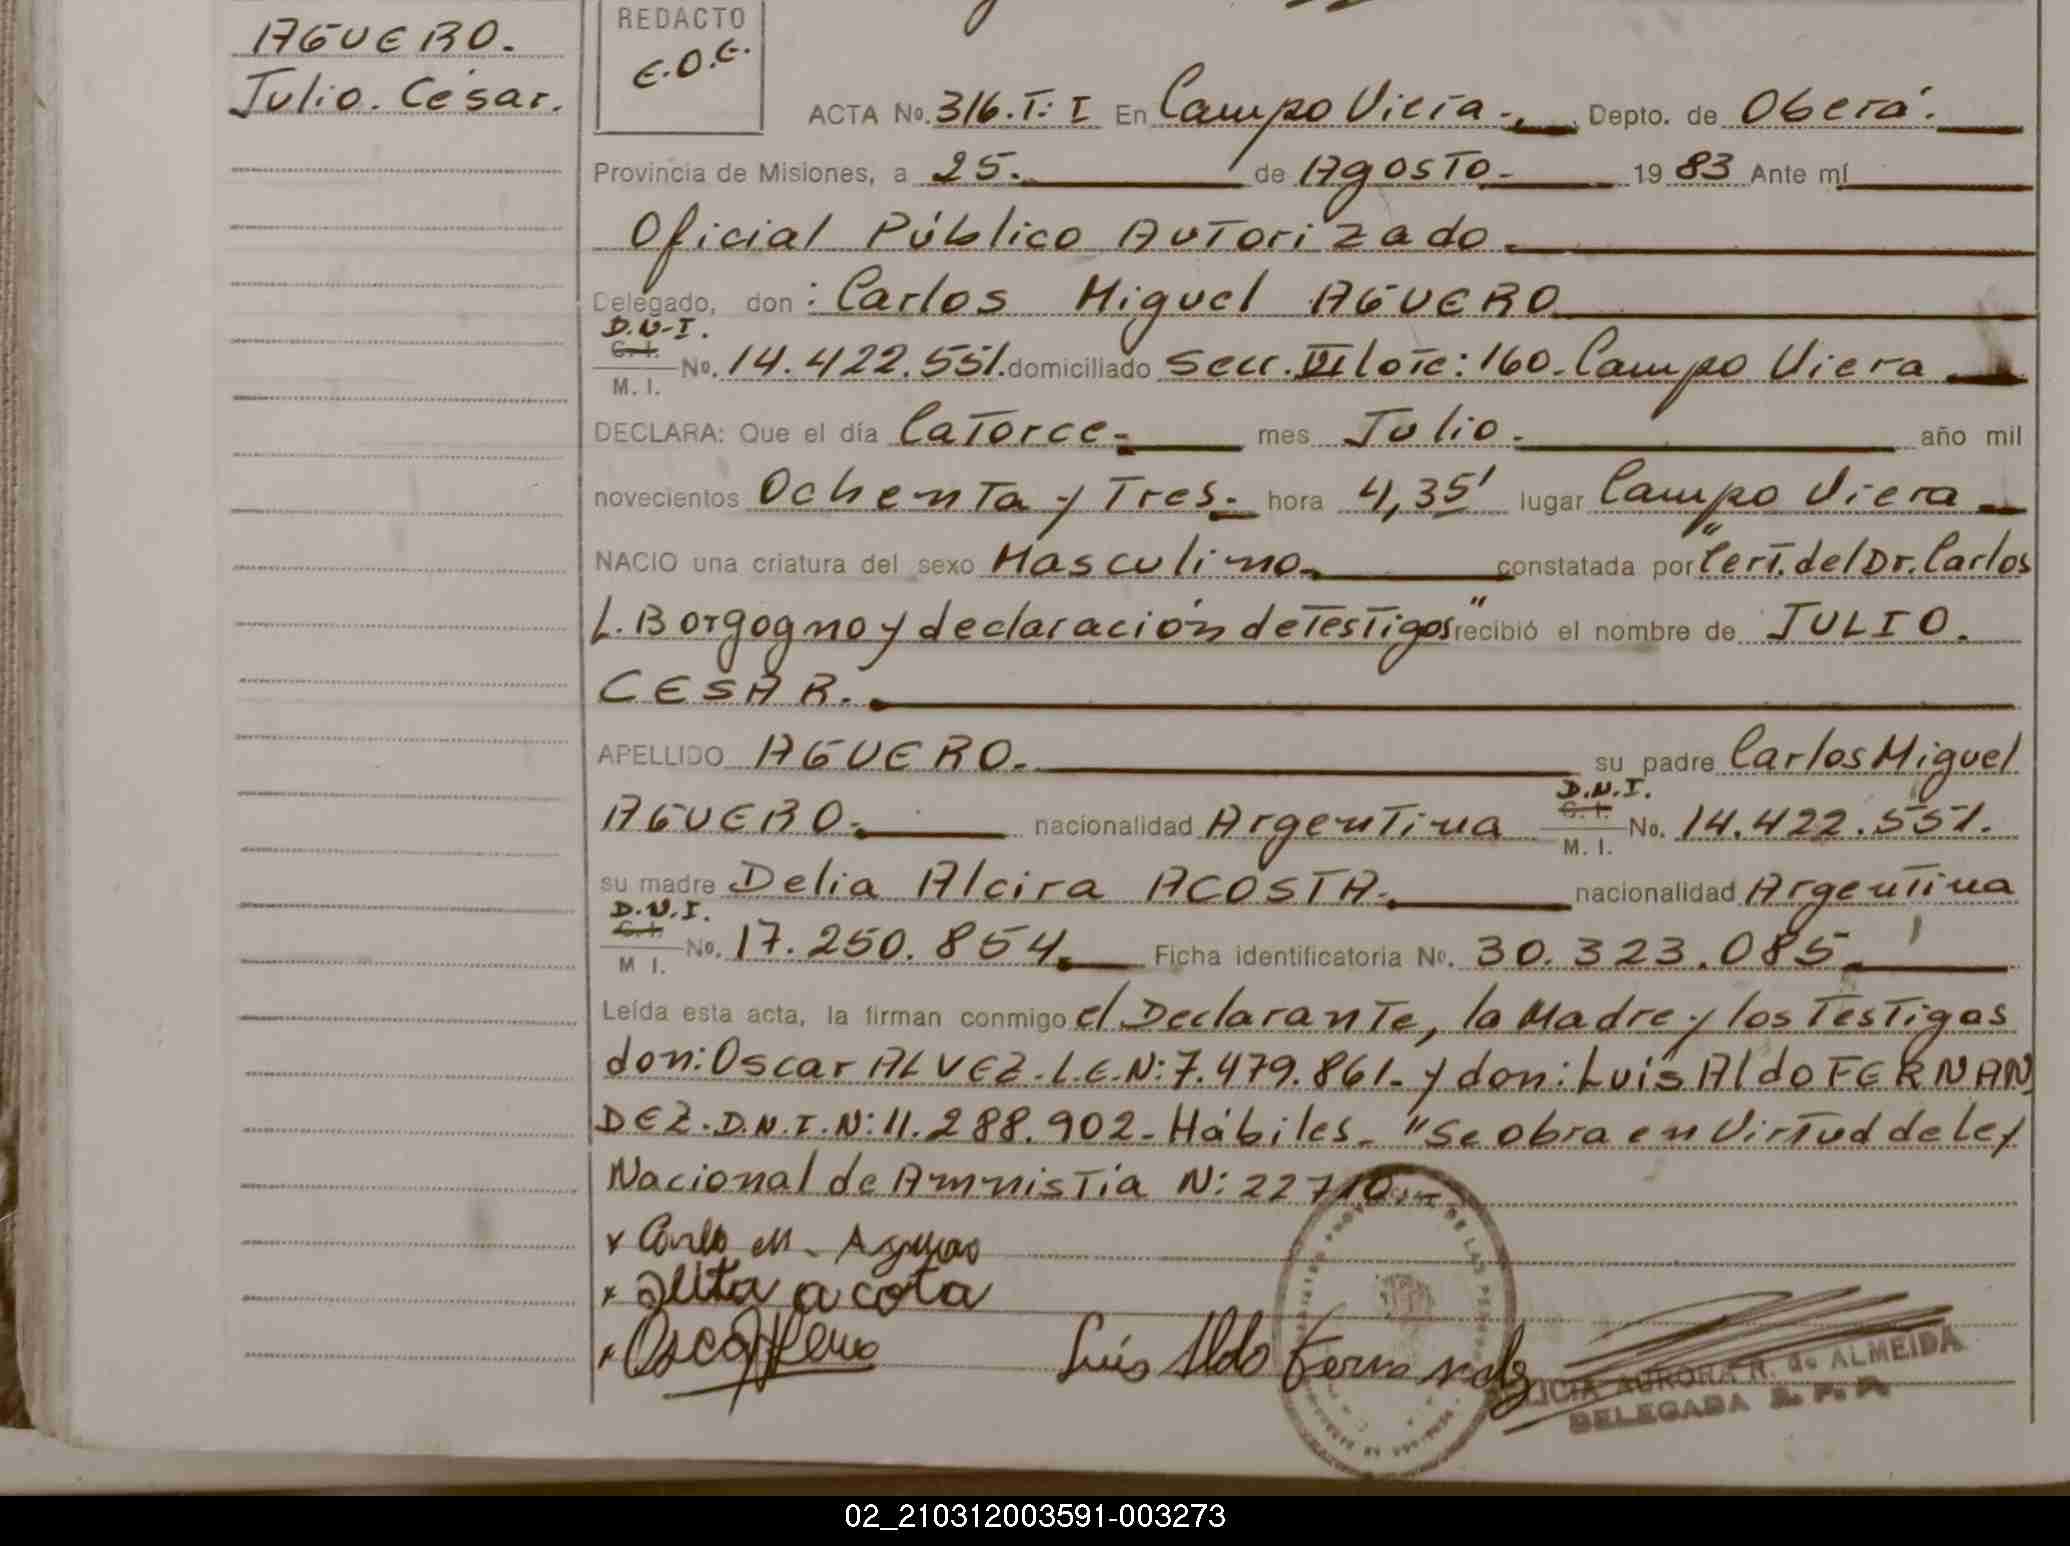 AGUERO.
Julio. César.
REDACTO
E.O.E.
ACTA No. 316. T: I En Campo Viera.- Depto. de Oberá.
Provincia de Misiones, a 25. de Agosto.- 1983 Ante mí
Oficial Público Autorizado.
Delegado, don: Carlos Miguel AGUERO
D.N.I.
C. I.
M. I.
No. 14.422.551. domiciliado Secc. VI lote: 160. Campo Viera
DECLARA: Que el día Catorce.- mes Julio.- año mil
novecientos Ochenta y Tres.- hora 4,35' lugar Campo Viera
NACIO una criatura del sexo Masculino. constatada por "Cert. del Dr. Carlos
L. Borgogno y declaración de Testigos" recibió el nombre de JULIO.
CESAR.
APELLIDO AGUERO. su padre Carlos Miguel
AGUERO.- nacionalidad Argentina D.N.I. C. I. M. I. No. 14.422.551.
su madre Delia Alcira ACOSTA. nacionalidad Argentina
D.N.I.
C. I.
M I.
No. 17.250.854. Ficha identificatoria No. 30.323.085.
Leída esta acta, la firman conmigo el Declarante, la Madre y los Testigos
don: Oscar ALVEZ. L.E.N: 7.479.861. y don: Luis Aldo FERNAN
DEZ. D.N.I.N: 11.288.902. Hábiles. "Se obra en Virtud de Ley
Nacional de Amnistía N: 22710.-
x Carlos M. Aguero
x acota
x Oscar
Luis Aldo Fernandez
ALICIA AURORA R. de ALMEIDA
DELEGADA R. P. P.
02_210312003591-003273